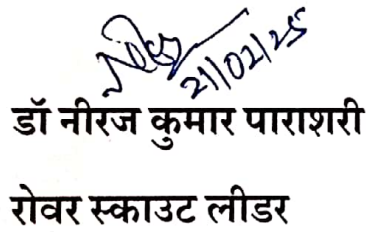 21/02/25
डॉ नीरज कुमार पाराशरी
रोवर स्काउट लीडर